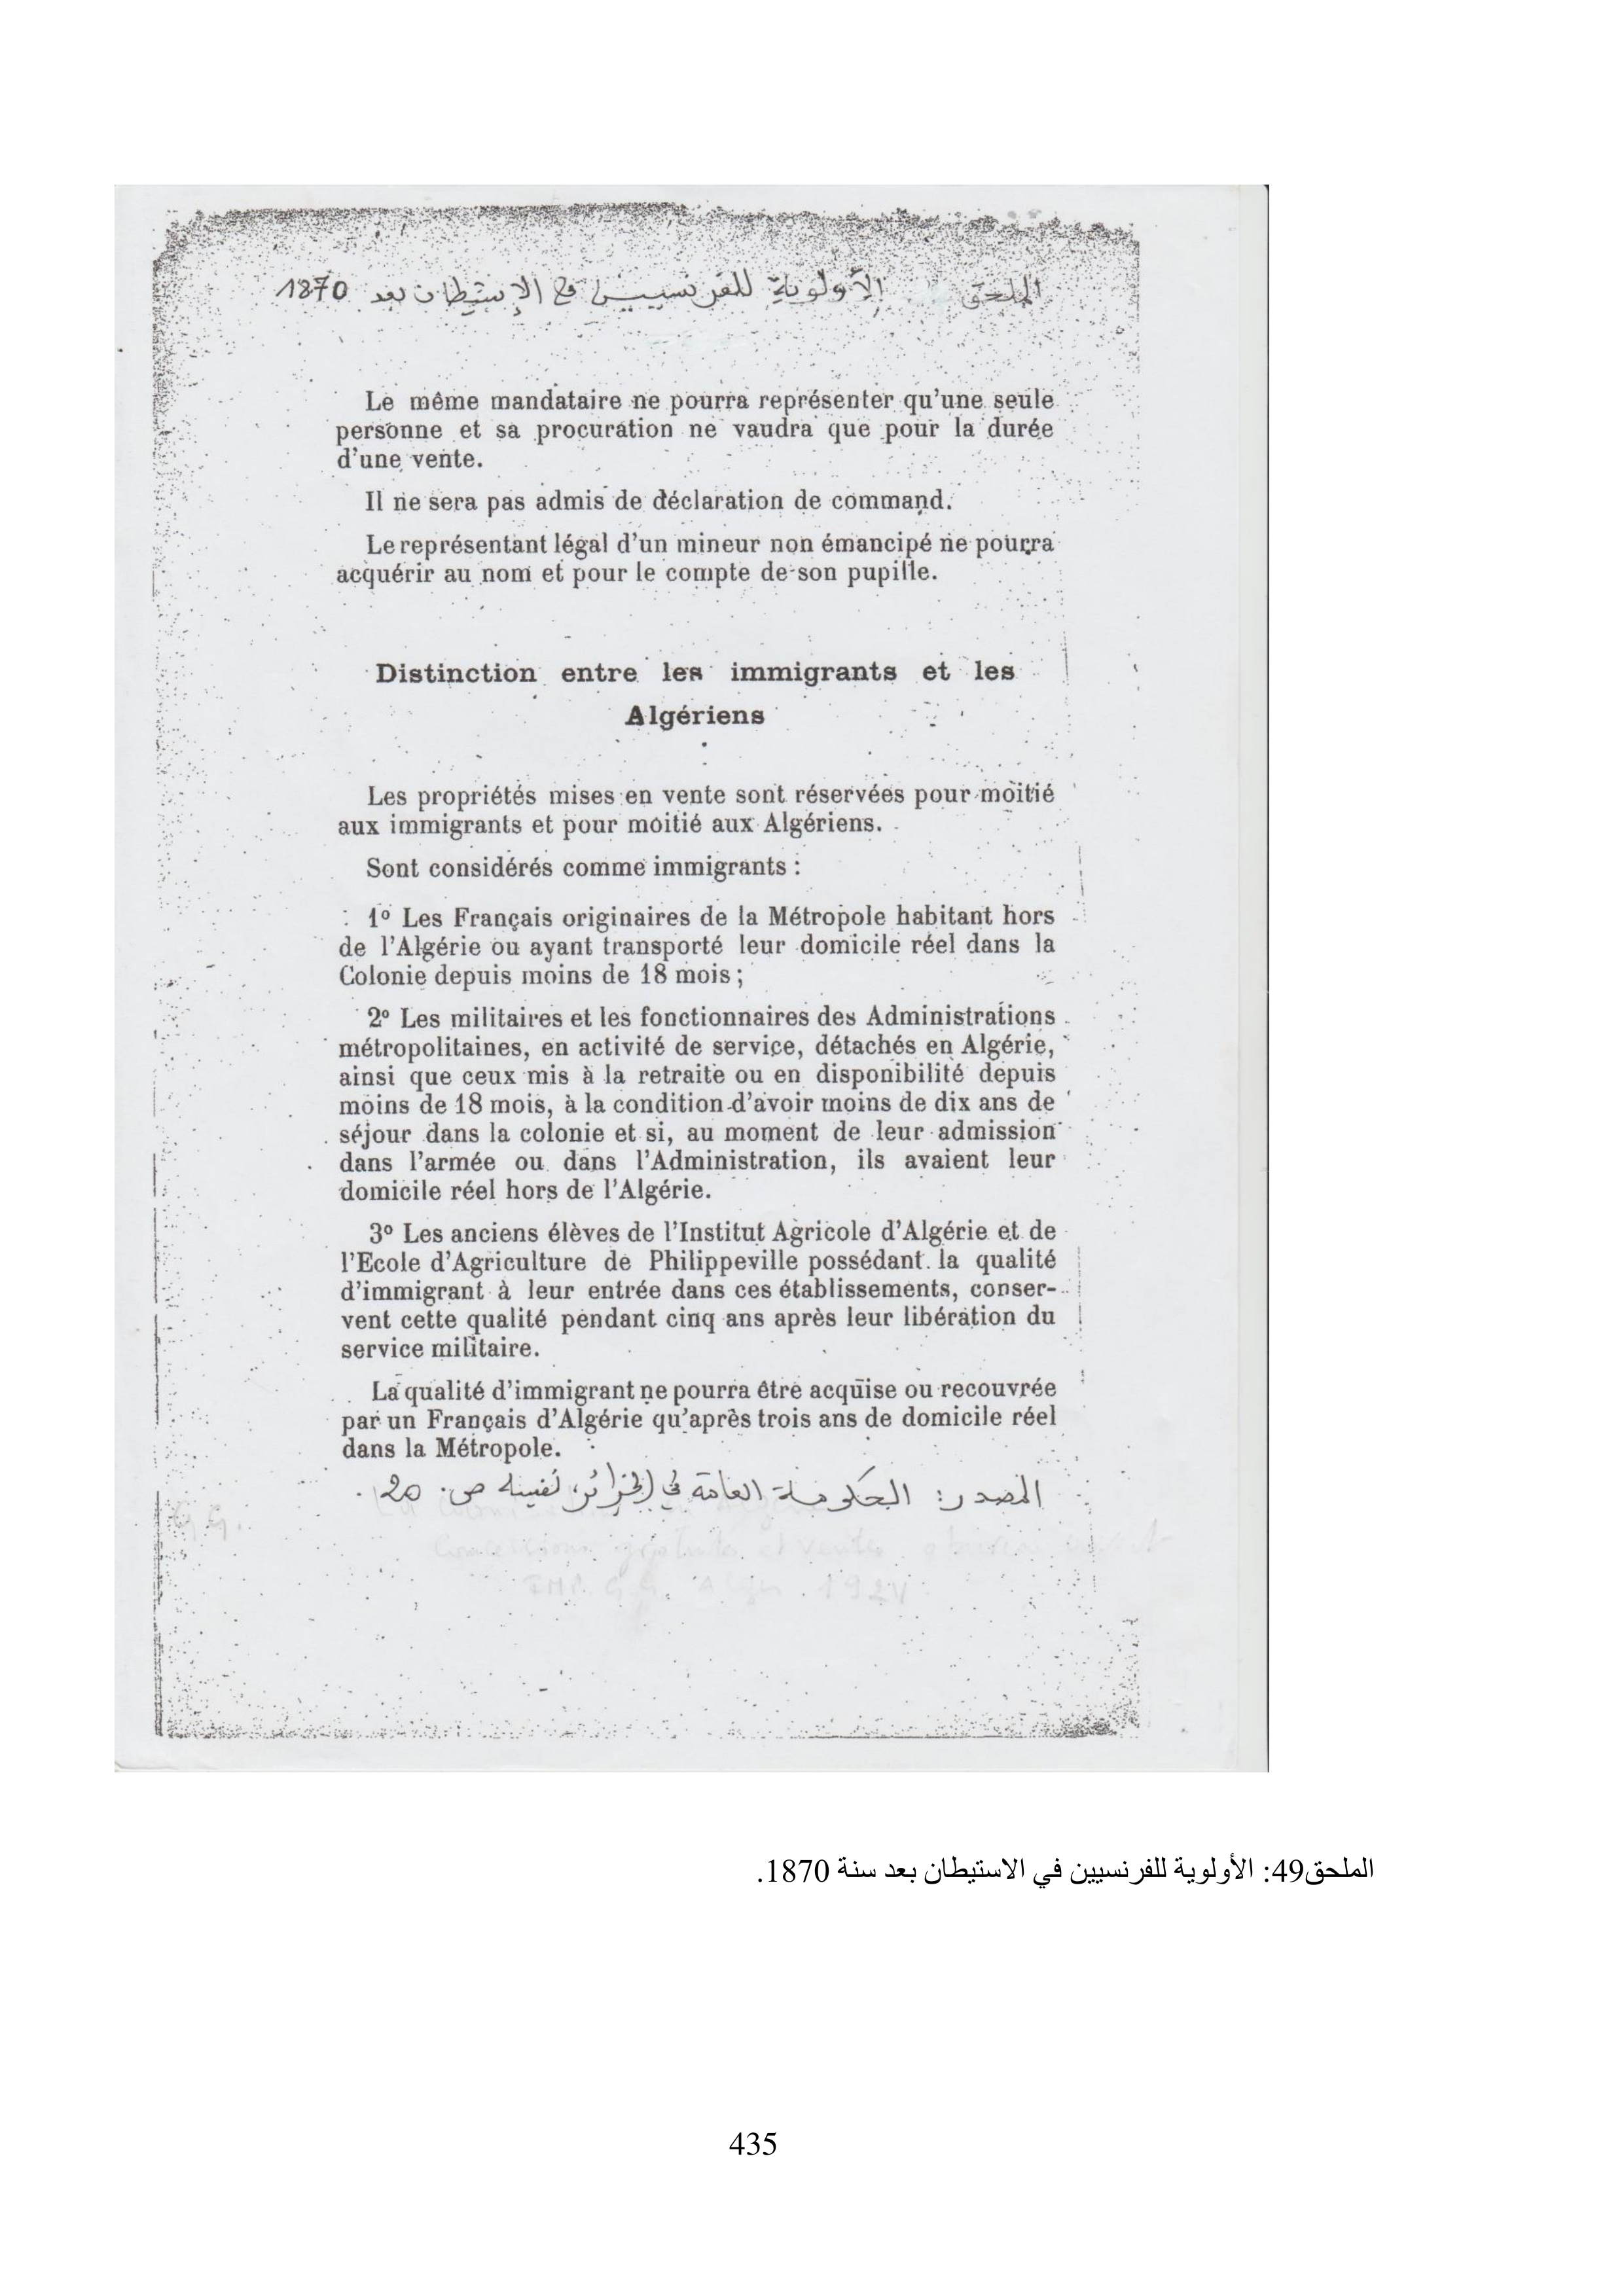 الملحق الأولوية للفرنسيين في الإستيطان بعد 1870
Le même mandataire ne pourra représenter qu'une seule
personne et sa procuration ne vaudra que pour la durée
d'une vente.
Il ne sera pas admis de déclaration de command.
Le représentant légal d'un mineur non émancipé ne pourra
acquérir au nom et pour le compte de son pupille.
Distinction entre les immigrants et les
Algériens
Les propriétés mises en vente sont réservées pour moitié
aux immigrants et pour moitié aux Algériens.
Sont considérés comme immigrants :
1º Les Français originaires de la Métropole habitant hors
de l'Algérie ou ayant transporté leur domicile réel dans la
Colonie depuis moins de 18 mois ;
2º Les militaires et les fonctionnaires des Administrations
métropolitaines, en activité de service, détachés en Algérie,
ainsi que ceux mis à la retraite ou en disponibilité depuis
moins de 18 mois, à la condition d'avoir moins de dix ans de
séjour dans la colonie et si, au moment de leur admission
dans l'armée ou dans l'Administration, ils avaient leur
domicile réel hors de l'Algérie.
3º Les anciens élèves de l'Institut Agricole d'Algérie et de
l'Ecole d'Agriculture de Philippeville possédant la qualité
d'immigrant à leur entrée dans ces établissements, conser-
vent cette qualité pendant cinq ans après leur libération du
service militaire.
La qualité d'immigrant ne pourra être acquise ou recouvrée
par un Français d'Algérie qu'après trois ans de domicile réel
dans la Métropole.
المصدر: الحكومة العامة في الجزائر، نفسه ص. 20.
G.G.
et ventes
IMP. G.G. Alger 1924
الملحق49: الأولوية للفرنسيين في الاستيطان بعد سنة 1870.
435